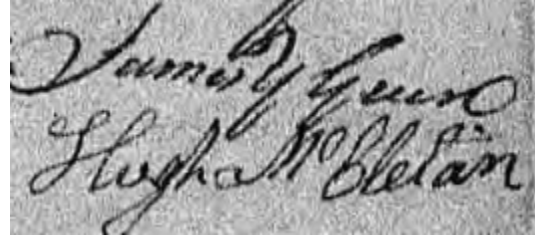 James Y Green
Hugh McClelan